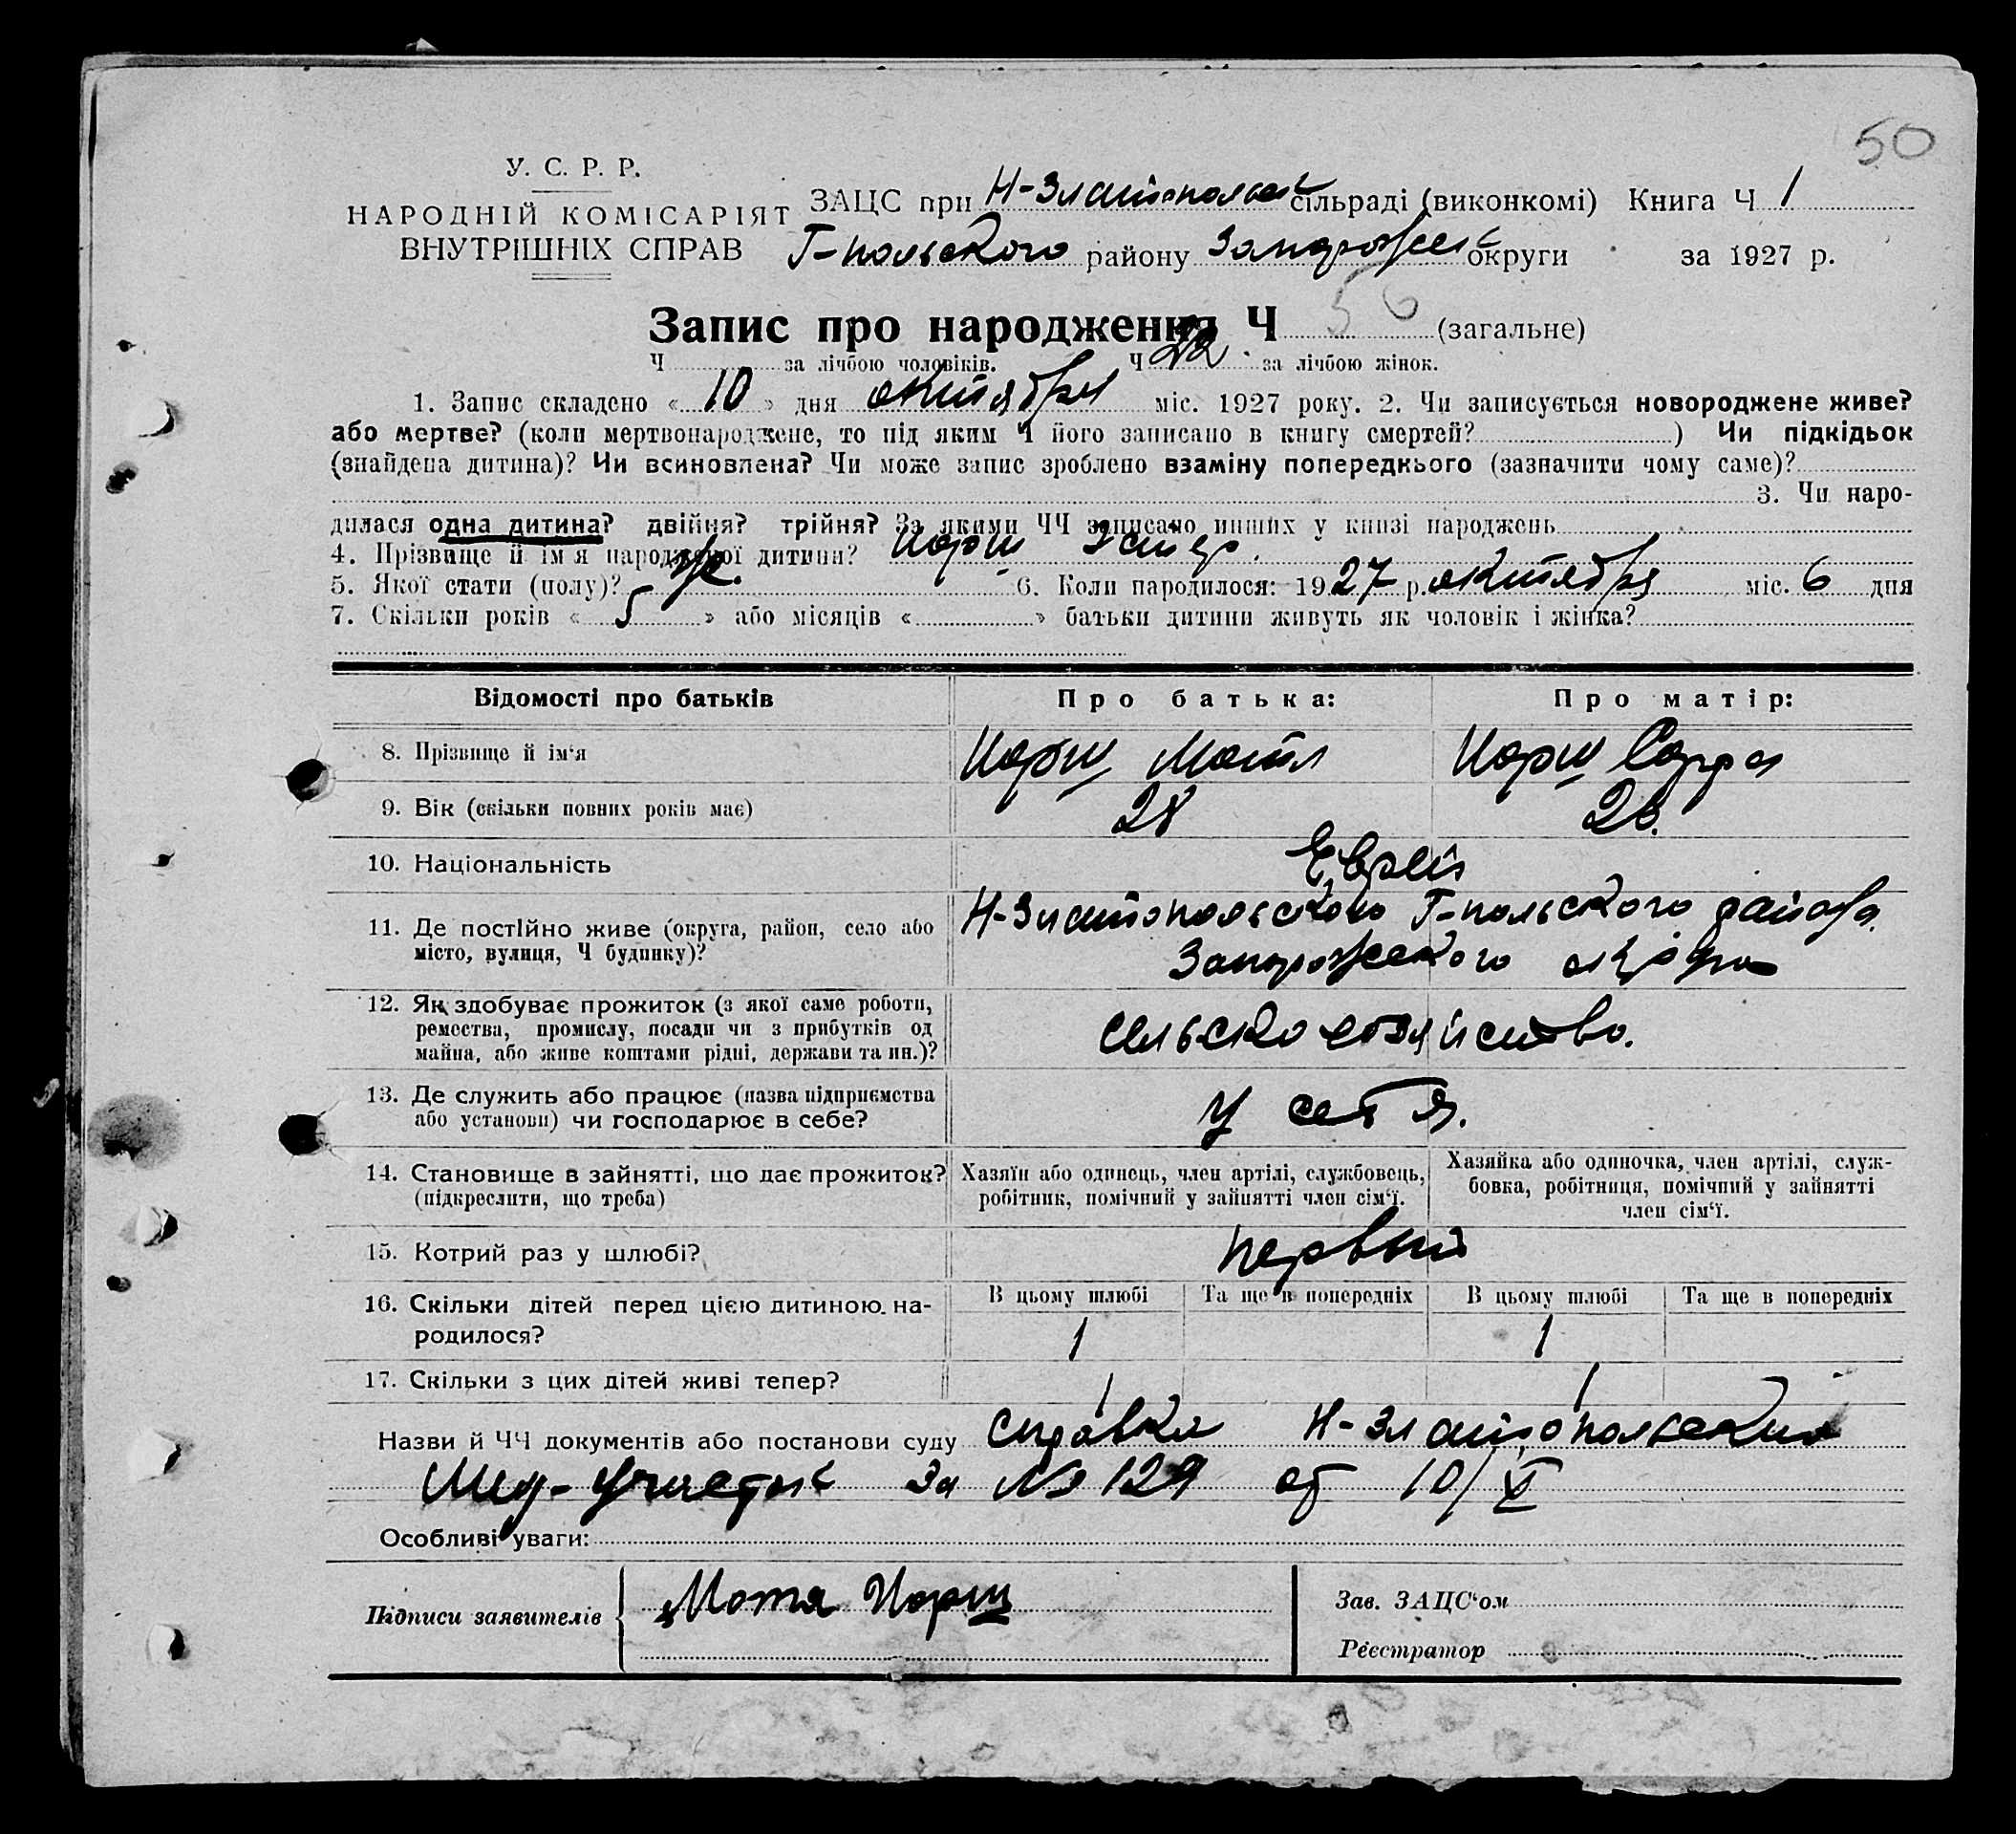 50
У. С. Р. Р.
НАРОДНІЙ КОМІСАРІЯТ
ВНУТРІШНІХ СПРАВ
ЗАЦС при Н-Златопольск сільраді (виконкомі) Книга Ч 1
Г-польского району Запорожск округи за 1927 р.
Запис про народження Ч 56 (загальне)
Ч за лічбою чоловіків. Ч 22 за лічбою жінок.
1. Запис складено « 10 » дня октября міс. 1927 року. 2. Чи записується новороджене живе?
або мертве? (коли мертвонароджене, то під яким Ч його записано в книгу смертей? ) Чи підкідьок
(знайдена дитина)? Чи всиновлена? Чи може запис зроблено взаміну попереднього (зазначити чому саме)?
3. Чи наро-
дилася одна дитина? двійня? трійня? За якими ЧЧ записано инших у книзі народжень
4. Прізвище й ім'я народженої дитини? Норш Эстер.
5. Якої стати (полу)? ж. 6. Коли народилося: 1927 р. октября міс. 6 дня
7. Скільки років « 5 » або місяців « » батьки дитини живуть як чоловік і жінка?
Відомості про батьків Про батька: Про матір:
8. Прізвище й ім'я Норш Мотл Норш Сарра
9. Вік (скільки повних років має) 28 26.
10. Національність Еврей
11. Де постійно живе (округа, район, село або Н-Златопольского Г-польского района
місто, вулиця, Ч будинку)? Запорожского округа
12. Як здобуває прожиток (з якої саме роботи,
ремества, промислу, посади чи з прибутків од сельскохозяйство.
майна, або живе коштами рідні, держави та ин.)?
13. Де служить або працює (назва підприємства
або установи) чи господарює в себе? у себя.
14. Становище в зайнятті, що дає прожиток? Хазяїн або одинець, член артілі, службовець, Хазяйка або одиночка, член артілі, служ-
(підкреслити, що треба) робітник, помічний у зайнятті член сім'ї. бовка, робітниця, помічний у зайнятті
член сім'ї.
15. Котрий раз у шлюбі? первый
16. Скільки дітей перед цією дитиною на- В цьому шлюбі Та ще в попередніх В цьому шлюбі Та ще в попередніх
родилося? 1 1
17. Скільки з цих дітей живі тепер? 1 1
Назви й ЧЧ документів або постанови суду справка Н-Златопольский
Мед-участок за № 129 от 10/X
Особливі уваги:
Підписи заявителів Мотя Норш
Зав. ЗАЦС'ом
Реєстратор